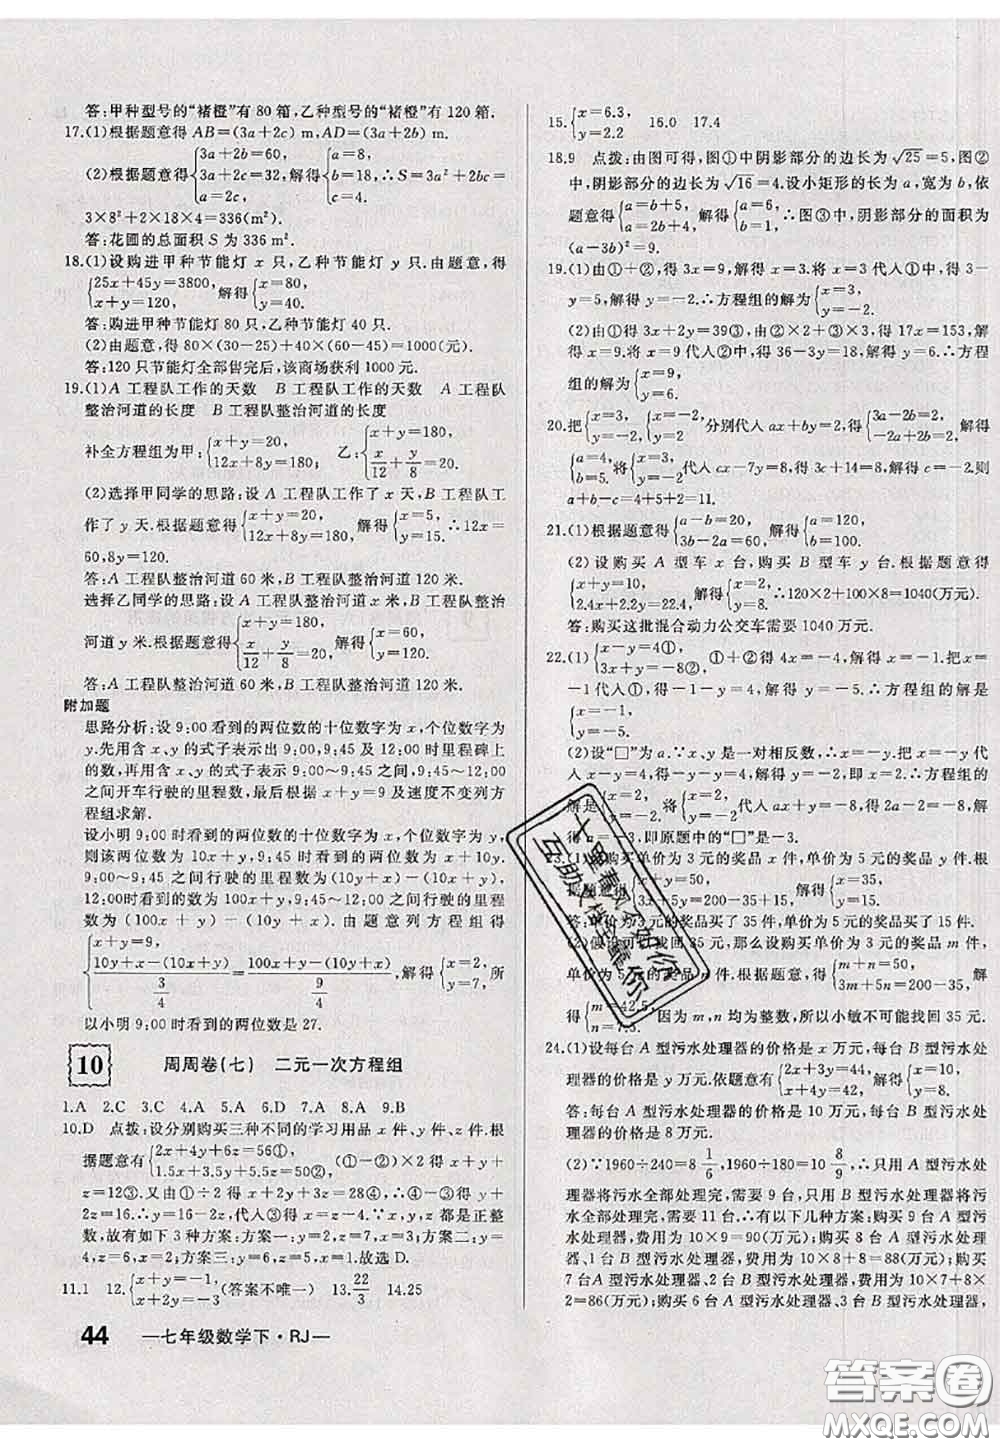 答:甲种型号的“褚橙”有 80 箱,乙种型号的“褚橙”有 120 箱.
17.(1)根据题意得 AB=(3a+2c) m,AD=(3a+2b) m.
(2)根据题意得{3a+2b=60, 3a+2c=32, a+2c=16, 解得{a=8, b=18, c=4.
3×8²+2×18×4=336(m²).
答:花圃的总面积 S 为 336 m².
18.(1)设购进甲种节能灯 x 只,乙种节能灯 y 只.由题意,得
{25x+45y=3800, x+y=120, 解得{x=80, y=40.
答:购进甲种节能灯 80 只,乙种节能灯 40 只.
(2)由题意,得 80×(30-25)+40×(60-45)=1000(元).
答:120 只节能灯全部售完后,该商场获利 1000 元.
19.(1)A 工程队工作的天数 B 工程队工作的天数 A 工程队
整治河道的长度 B 工程队整治河道的长度
补全方程组为甲:{x+y=20, 12x+8y=180; 乙:{x+y=180, x/12+y/8=20.
(2)选择甲同学的思路:设 A 工程队工作了 x 天,B 工程队工
作了 y 天.根据题意得{x+y=20, 12x+8y=180, 解得{x=5, y=15. ∴12x=
60,8y=120.
答:A 工程队整治河道 60 米,B 工程队整治河道 120 米.
选择乙同学的思路:设 A 工程队整治河道 x 米,B 工程队整治
河道 y 米.根据题意得{x+y=180, x/12+y/8=20, 解得{x=60, y=120.
答:A 工程队整治河道 60 米,B 工程队整治河道 120 米.
附加题
思路分析:设 9:00 看到的两位数的十位数字为 x,个位数字为
y.先用含 x、y 的式子表示出 9:00,9:45 及 12:00 时里程碑上
的数,再用含 x、y 的式子表示出 9:00~9:45 之间,9:45~12:00
之间开车行驶的里程数,最后根据 x+y=9 及速度不变列方
程组求解.
设小明 9:00 时看到的两位数的十位数字为 x,个位数字为 y,
则该两位数为 10x+y,9:45 时看到的两位数为 x+10y,
12:00时看到的数为 100x+y,9:00~9:45 之间行驶的里程
数为(100x+y)-(10y+x).由题意列方程组得
{x+y=9, (10y+x-(10x+y))/(3/4)=(100x+y-(10y+x))/(9/4), 解得{x=2, y=7, 所
以小明 9:00 时看到的两位数是 27.
10 周周卷(七) 二元一次方程组
1.A 2.C 3.C 4.A 5.A 6.D 7.A 8.A 9.B
10.D 点拨:设分别购买三种不同的学习用品 x 件、y 件、z 件.根
据题意有{2x+4y+6z=56①, 1.5x+3.5y+5.5z=50②, (①-②)×2 得 x+y+
z=12③.又由①÷2 得 x+2y+3z=28④,∴④-③得 y+
2z=16.∴y=16-2z,代入③得 x=z-4.∵x、y、z 都是正整
数,故有如下 3 种方案:方案一:y=2,z=7,x=3;方案二:y=
4,z=6,x=2;方案三:y=6,z=5,x=1.故选 D.
11.1 12.{x+y=-1, x+2y=-3 (答案不唯一) 13.22/3 14.25
44 —七年级数学下·RJ—
15.{x=6.3, y=2.2 16.0 17.4
18.9 点拨:由图可得,图①中阴影部分的边长为√25=5,图②
中,阴影部分的边长为√16=4.设小矩形的长为 a,宽为 b,依
题意得{a=b+5, a=2b+4, 解得{a=6, b=1. ∴图③中,阴影部分的面积为
(a-3b)²=9.
19.(1)由①+②,得 3x=9,解得 x=3.将 x=3 代入①中,得 3-
y=5,解得 y=-2.∴方程组的解为{x=3, y=-2.
(2)由①得 3x+2y=39③,由②×2+③×3,得 17x=153,解
得 x=9.将 x=9 代入②中,得 36-3y=18,解得 y=6.∴方程
组的解为{x=9, y=6.
20.把{x=3, y=-2, {x=-2, y=2 分别代入 ax+by=2,得{3a-2b=2, -2a+2b=2, 解得
{a=4, b=5. 将{x=3, y=-2 代入 cx-7y=8,得 3c+14=8,解得 c=-2.则
a+b-c=4+5+2=11.
21.(1)根据题意得{a-b=20, 3b-2a=60, 解得{a=120, b=100.
(2)设购买 A 型车 x 台,购买 B 型车 y 台.根据题意得
{x+y=10, ∴120×2+100×8=1040(万元).
答:购买这批混合动力公交车需要 1040 万元.
22.(1){x-y=4①, ①+②得 4x=-4,解得 x=-1.把 x=
-1代入①,得-1-y=4,解得 y=-5.∴方程组的解是
{x=-1, y=-5.
(2)设“□”为 a.∵x、y 是一对相反数,∴x=-y.把 x=-y 代
入 x-y=4,得-y-y=4,解得 y=-2,即 x=2.∴方程组的
得 a=-3,即原题中的“□”是-3.
答:单价为 3 元的奖品买了 35 件,单价为 5 元的奖品买了 15 件.
(2)假设可以找回 35 元,那么设购买单价为 3 元的奖品 m 件,
得{m=42.5, n=7.5. 因为 m,n 均为整数,所以小敏不可能找回 35 元.
24.(1)设每台 A 型污水处理器的价格是 x 万元,每台 B 型污水处
答:每台 A 型污水处理器的价格是 10 万元,每台 B 型污水处
理器的价格是 8 万元.
(2)∵1960÷240=8 1/6,1960÷180=10 8/9,∴只用 A 型污水处
理器将污水全部处理完,需要 9 台,只用 B 型污水处理器将污
水全部处理完,需要 11 台.∴有以下几种方案:购买 9 台 A 型
污水处理器,费用为 10×9=90(万元);购买 8 台 A 型污水处理
器、1 台 B 型污水处理器,费用为 10×8+8=88(万元);购买
7 台 A 型污水处理器、2 台 B 型污水处理器,费用为 10×7+8×
2=86(万元);购买 6 台 A 型污水处理器、3 台 B 型污水处理器,
答案圈
MXQE.COM